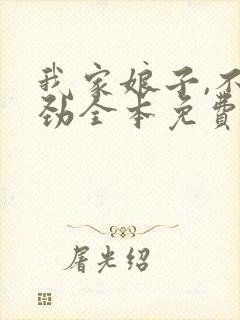 我家娘子,不
劲全本免费
屠光绍